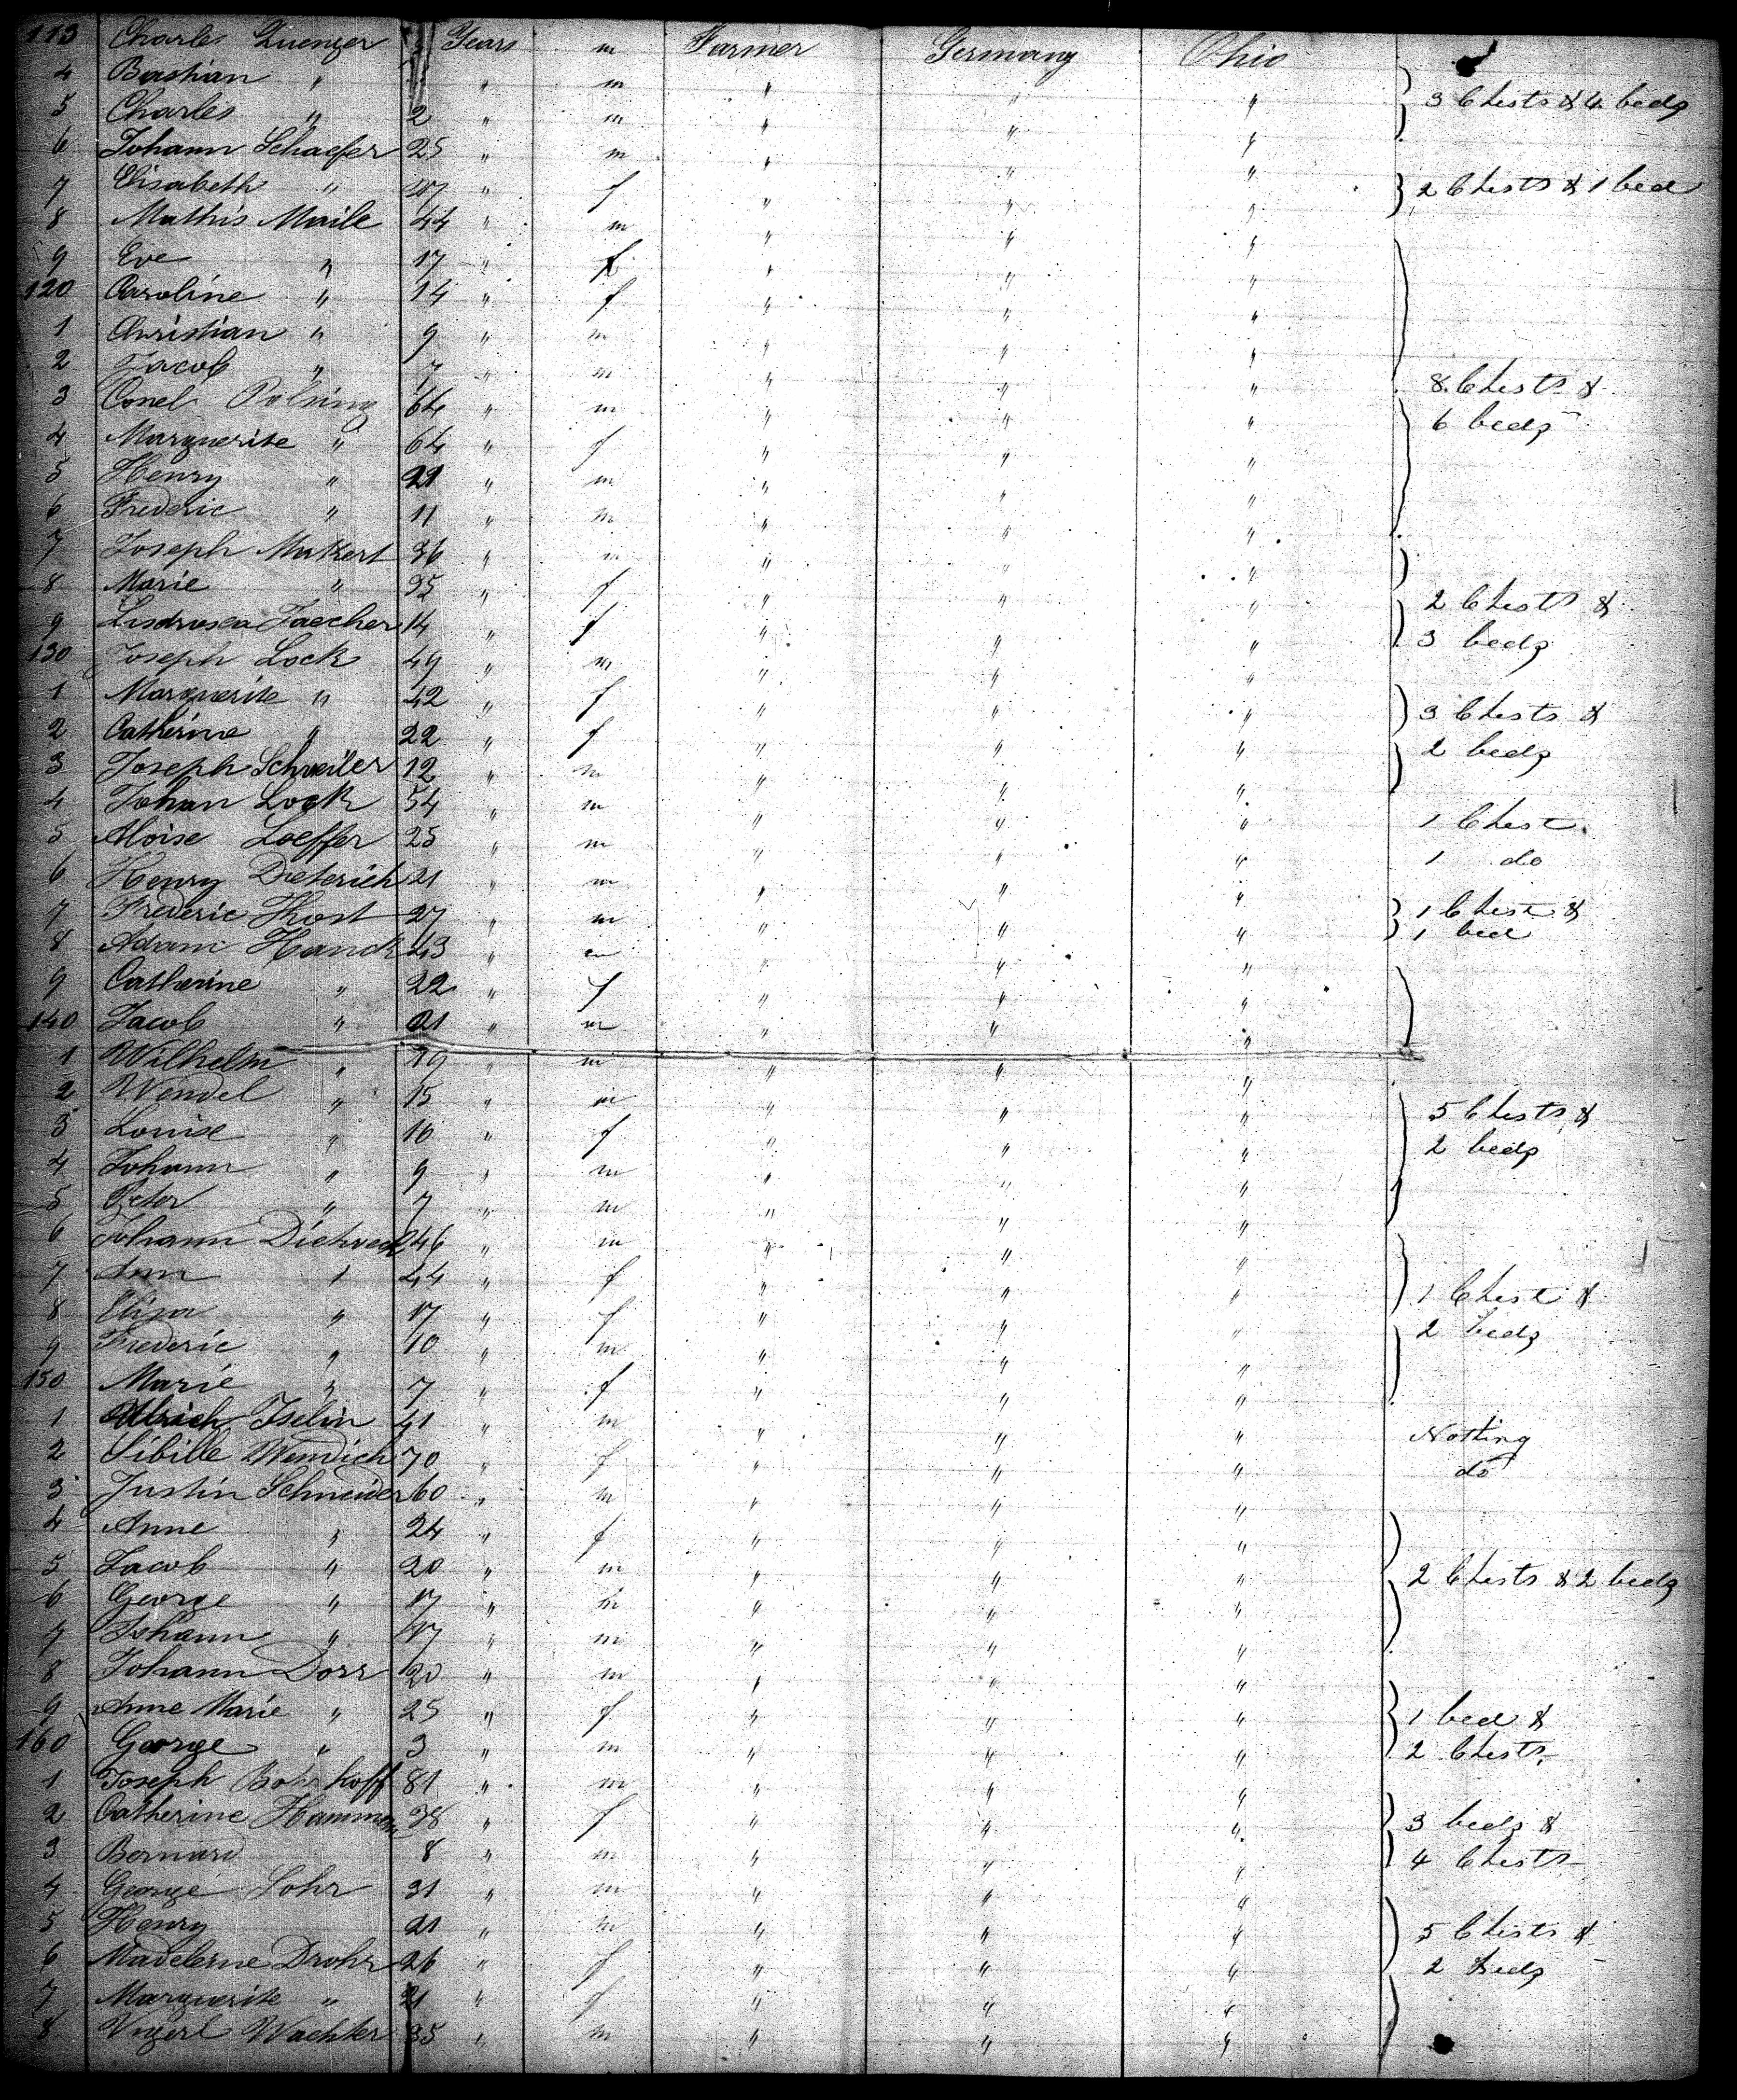 113 Charles Zuenger Years m Farmer Germany Ohio
4 Bastian " " m " " "
5 Charles " 2 " m " " " 3 Chests & 4 beds
6 Johann Schaefer 25 " m " " "
7 Elisabeth " 47 " f " " " 2 Chests & 1 bed
8 Mathis Maile 44 " m " " "
9 Eve " 17 " f " " "
120 Caroline " 14 " f " " "
1 Christian " 9 " m " " "
2 Jacob " 7 " m " " " 8 Chests &
3 Conel 64 " m " " " 6 beds
4 Marguerite " 64 " f " " "
5 Henry " 21 " m " " "
6 Frederic " 11 " m " " "
7 Joseph Matkert 36 " m " " "
8 Marie " 35 " f " " " 2 Chests &
9 Faecher 14 " f " " " 3 beds
130 Joseph Lock 49 " m " " "
1 Marguerite " 42 " f " " " 3 Chests &
2 Catherine " 22 " f " " " 2 beds
3 Joseph Schweiler 12 " m " " "
4 Johan Lock 54 " m " " " 1 Chest
5 Aloise Loeffer 25 " m " " " 1 do
6 Henry Dieterich 21 " m " " "
7 Frederic Kost 27 " m " " " 1 Chest &
8 Adam Hanck 43 " m " " " 1 bed
9 Catherine " 22 " f " " "
140 Jacob " 21 " m " " "
1 Wilhelm " 19 " m " " "
2 Wendel " 15 " m " " " 5 Chests &
3 Louise " 16 " f " " " 2 beds
4 Johann " 9 " m " " "
5 Peter " 7 " m " " "
6 Johann 46 " m " " "
7 Ann " 44 " f " " " 1 Chest &
8 Eliza " 17 " f " " " 2 beds
9 Frederic " 10 " m " " "
150 Marie " 7 " f " " "
1 Ulrich Iselin 41 " m " " " Nothing
2 Sibille Wendich 70 " f " " " do
3 Justin Schneider 60 " m " " "
4 Anne " 24 " f " " "
5 Jacob " 20 " m " " " 2 Chests & 2 beds
6 George " 17 " m " " "
7 Johann " 17 " m " " "
8 Johann Dorr 20 " m " " "
9 Anne Marie " 25 " f " " " 1 bed &
160 George " 3 " m " " " 2 Chests
1 Joseph Bohrhoff 81 " m " " "
2 Catherine Hammen 38 " f " " " 3 beds &
3 Bernard 8 " m " " " 4 Chests
4 George Lohr 31 " m " " "
5 Henry 21 " m " " " 5 Chests &
6 Madeleine Drohr 26 " f " " " 2 beds
7 Marguerite " 21 " f " " "
8 Wachter 35 " m " " "